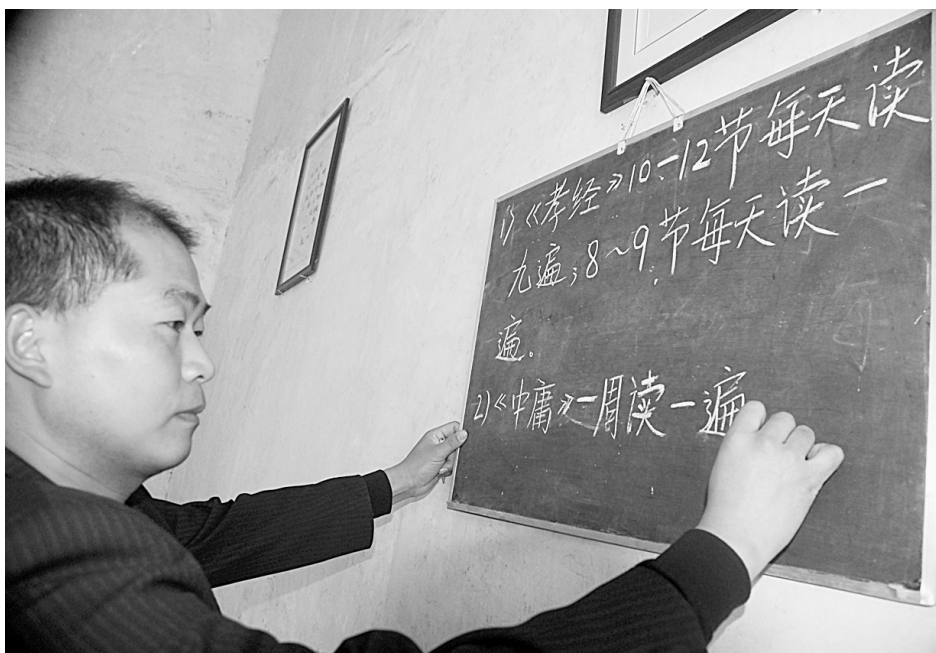 1)《孝经》10~12节每天读
九遍;8~9节每天读一
遍。
2)《中庸》一周读一遍